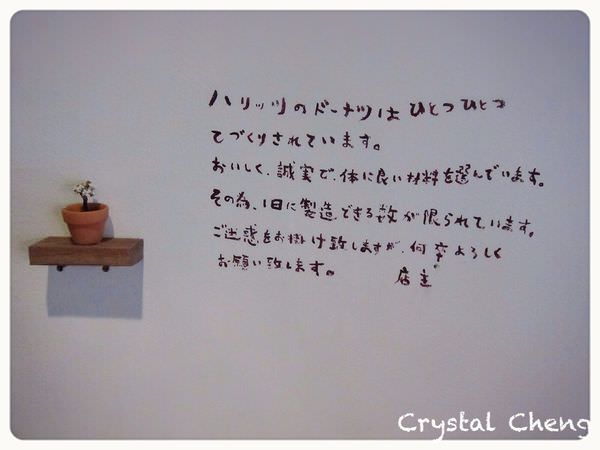 ハリッツのドーナツは ひとつひとつ
てづくりされています。
おいしく、誠実で、体に良い材料を選んでいます。
その為、1日に製造できる数が限られています。
ご迷惑をお掛け致しますが、何卒よろしく
お願い致します。 店主
Crystal Cheng